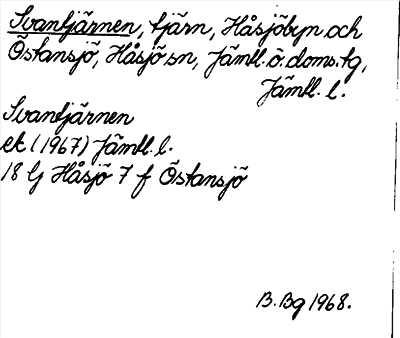 Svantjärnen, tjärn, Håsjöbyn och
Östansjö, Håsjö sn, Jämtl. ö. doms. tg,
Jämtl. l.
Svantjärnen
ek (1967) Jämtl. l.
18 Ij Håsjö 7 f Östansjö
B. Bg 1968.